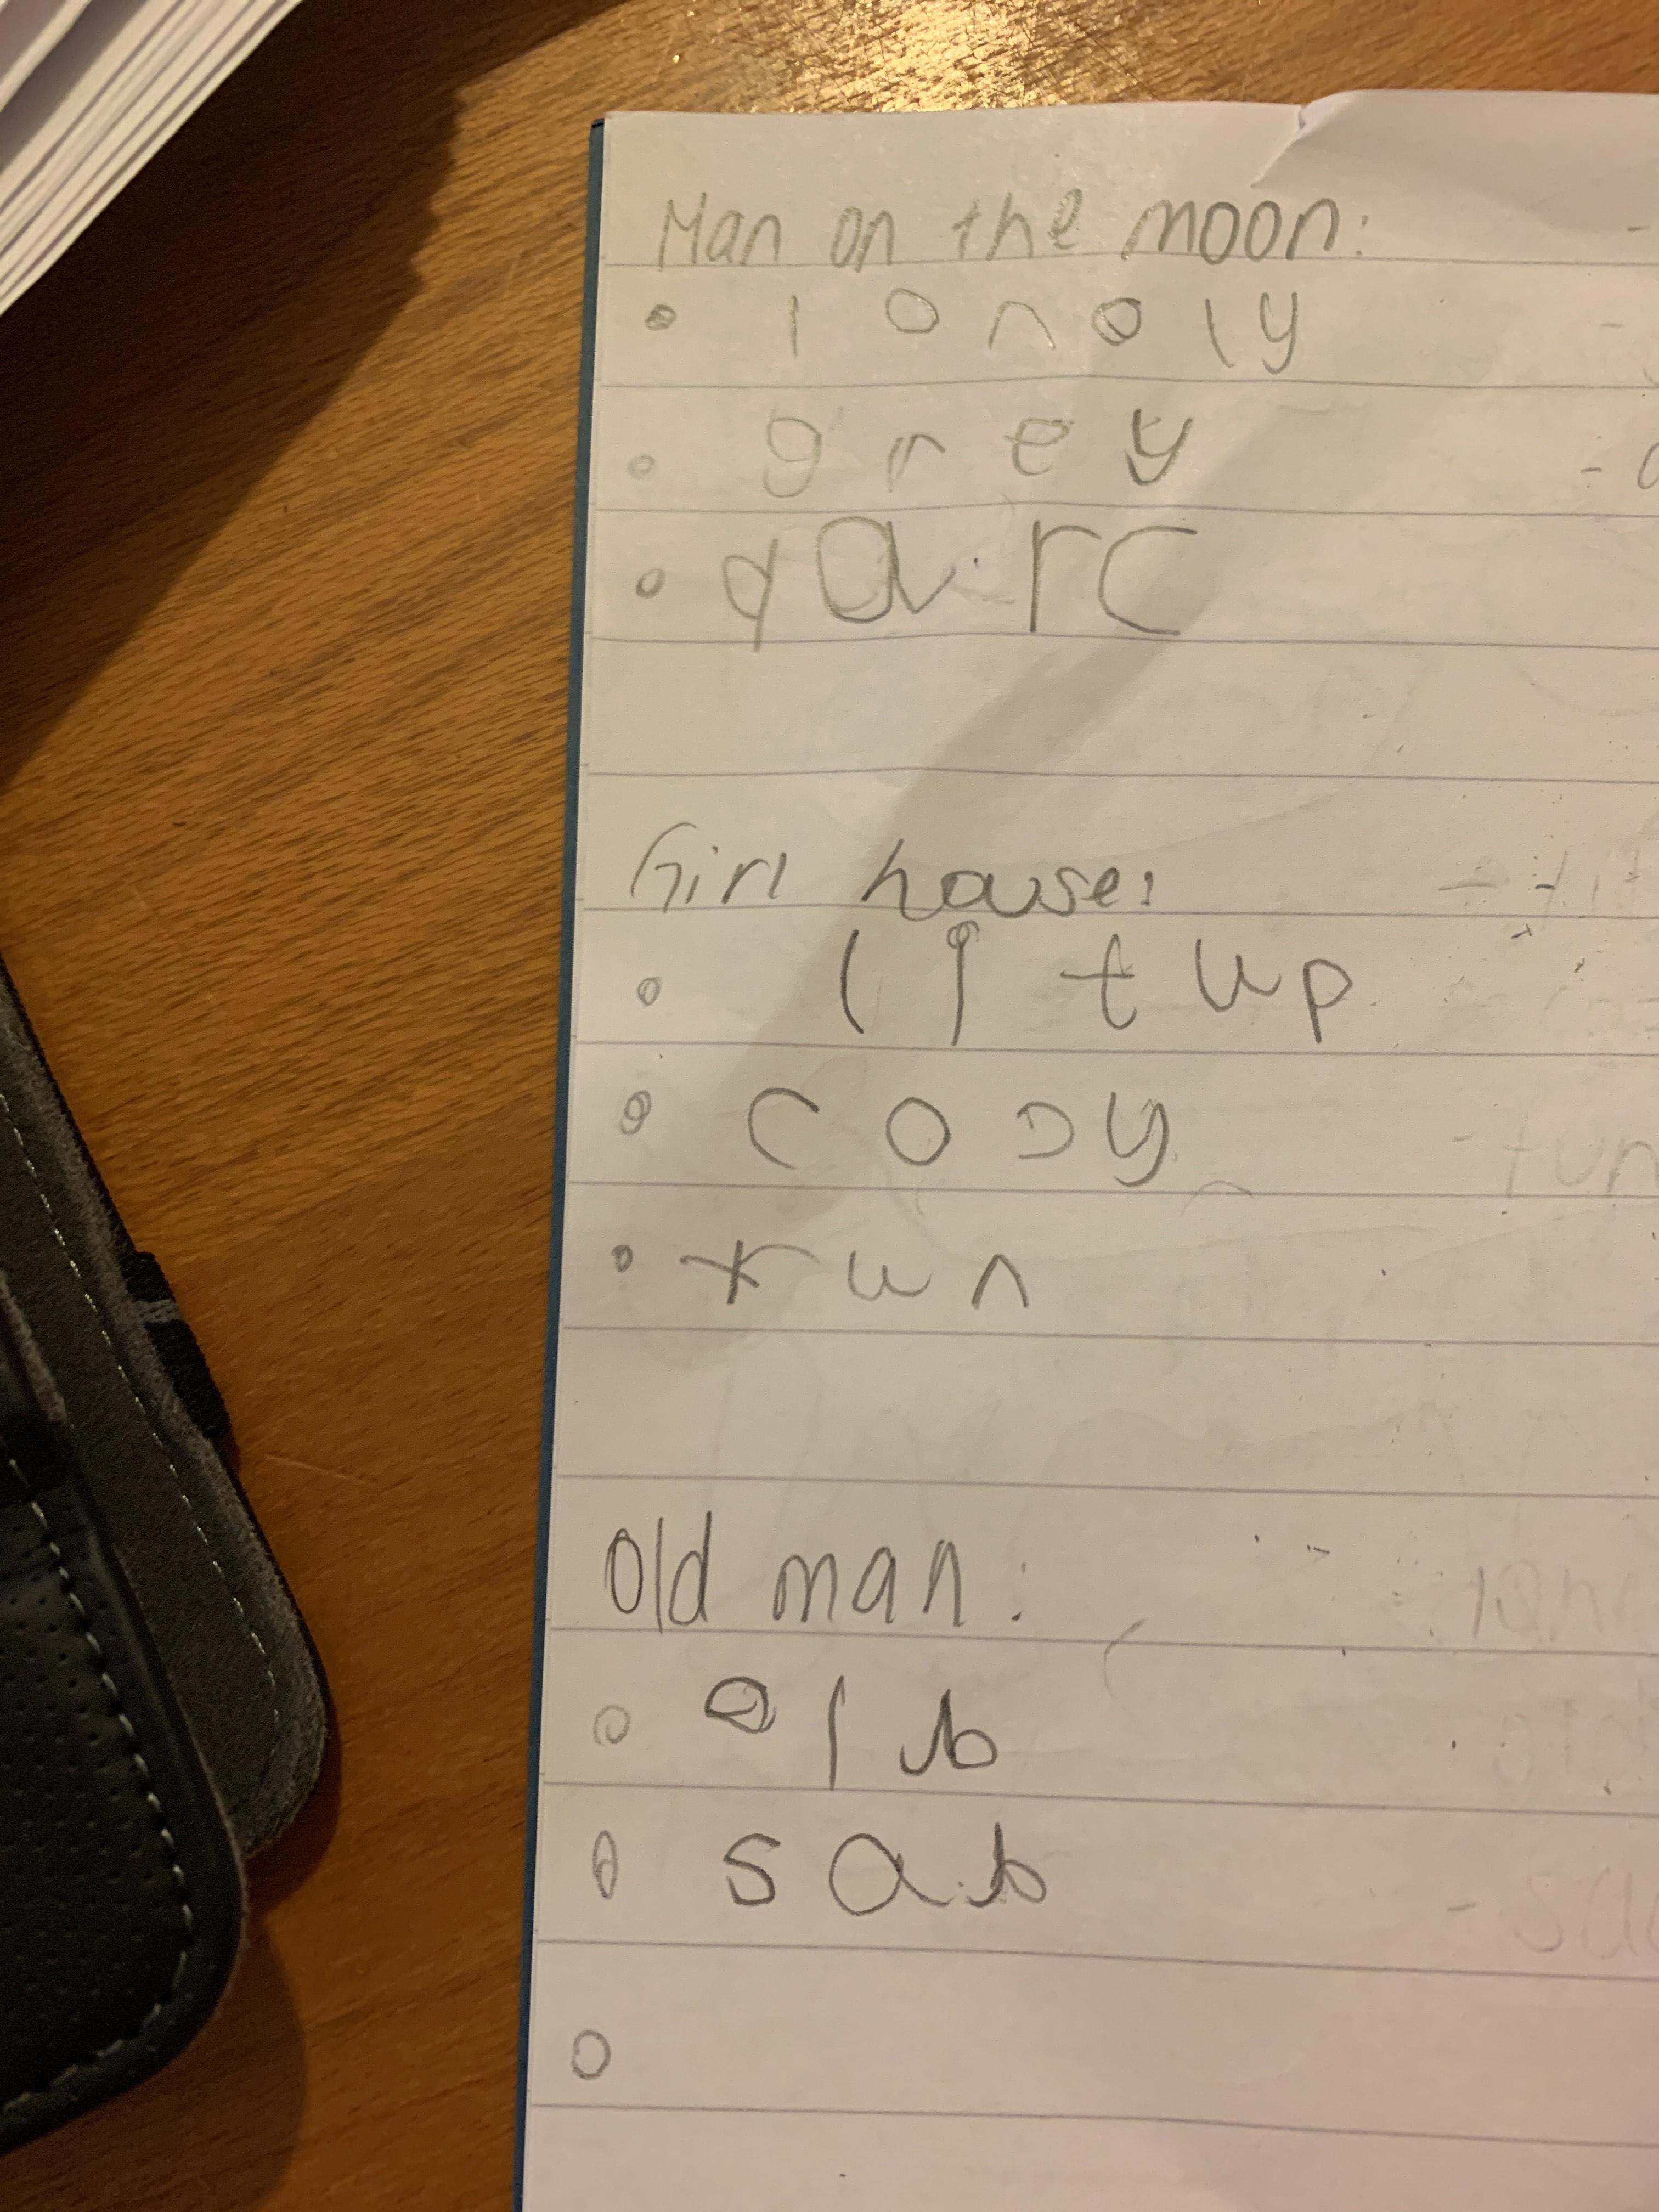 Man on the moon:
• lonoly
• grey
• darc
Girl house:
• lit up
• cosy
• fun
Old man:
• olb
• sab